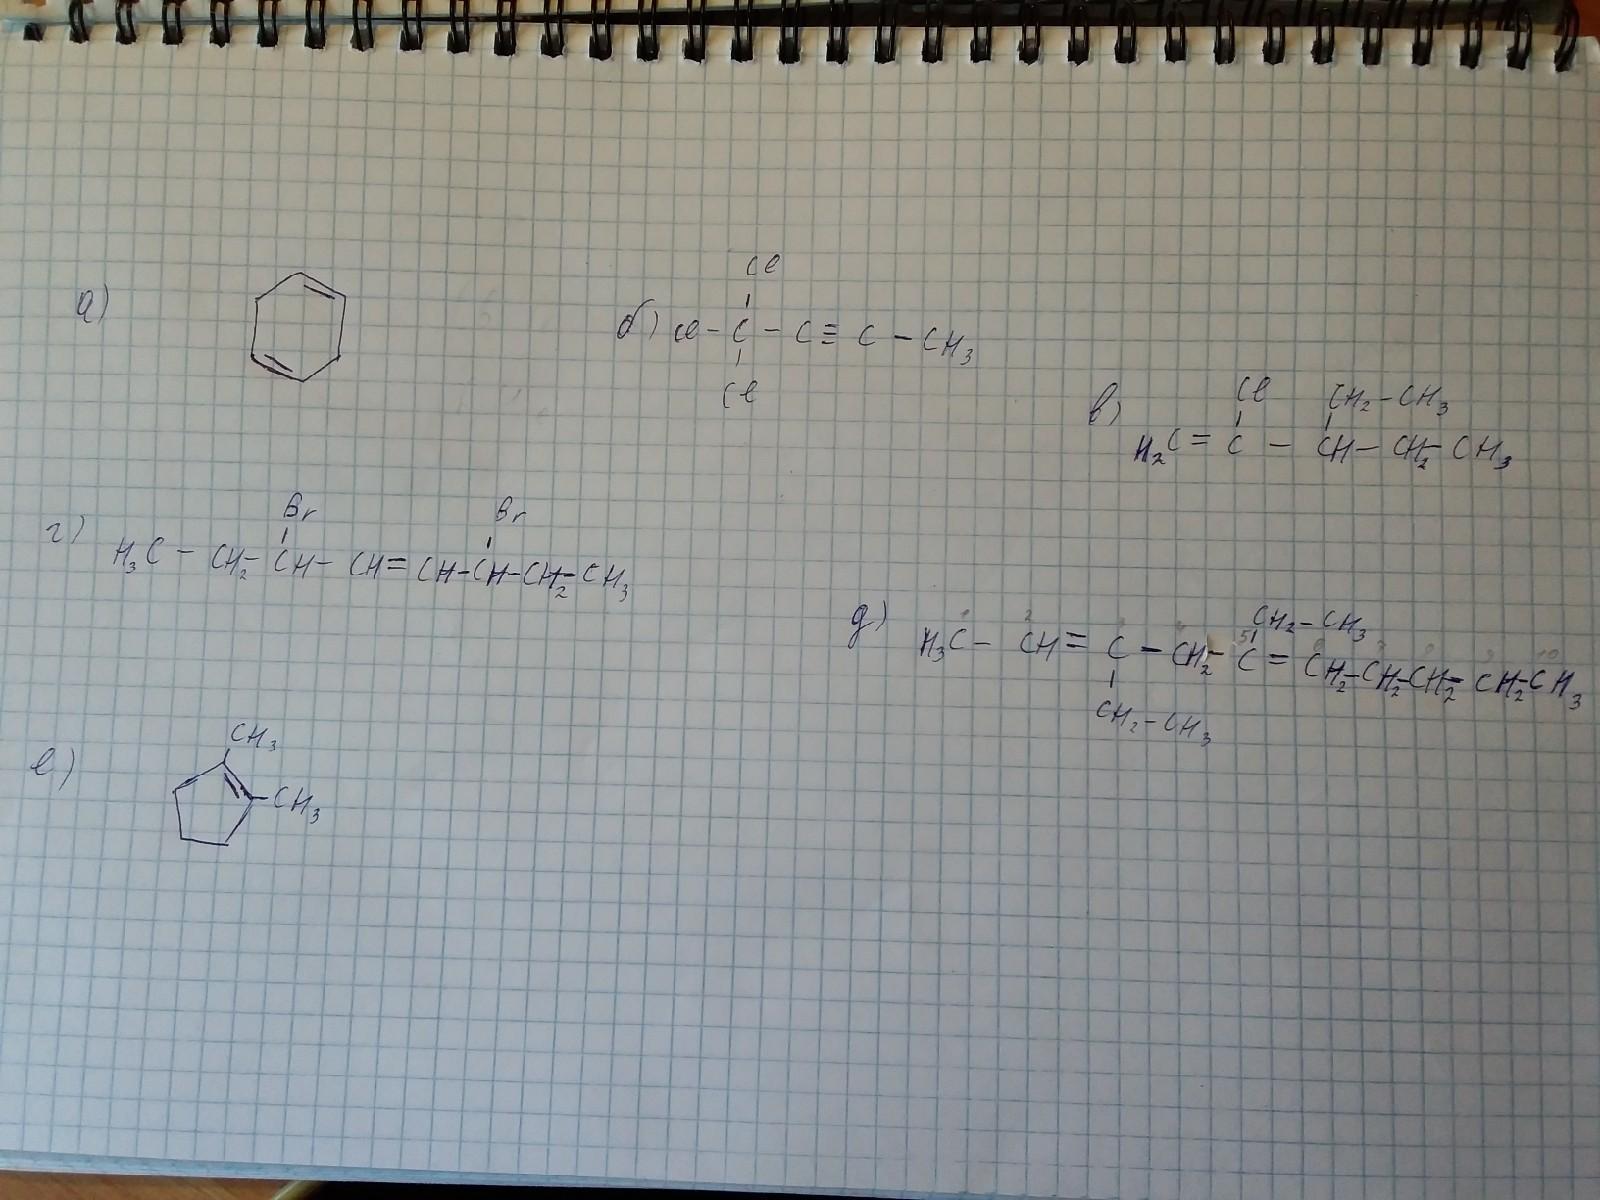 а)
Cl
б) Cl - C - C ≡ C - CH3
Cl
Cl CH2-CH3
в) H2C = C - CH - CH2 - CH3
Br Br
г) H3C - CH2 - CH - CH = CH - CH - CH2 - CH3
CH2 - CH3
1 2 3 4 5 6 7 8 9 10
д) H3C - CH = C - CH2 - C = CH2 - CH2 - CH2 - CH2 - CH3
CH2 - CH3
CH3
е) CH3